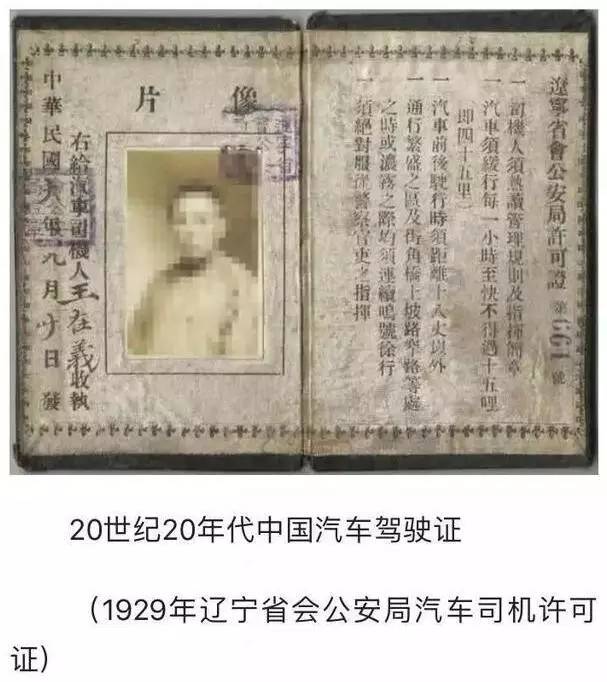 遼寧省會公安局許可證 第 661 號
一 司機人須熟讀管理規則及指揮簡章
一 汽車須緩行每一小時至快不得過十五哩
即四十五里）
一 汽車前後駛行時須距離十八丈以外
一 通行繁盛之區及街角橋上坡路窄路等處
之時或濃霧之際均須連續鳴號徐行
一 須絕對服從警察官吏之指揮
像片
右給汽車司機人王在義收執
中華民國 年九月廿日發
20世纪20年代中国汽车驾驶证
（1929年辽宁省会公安局汽车司机许可
证）